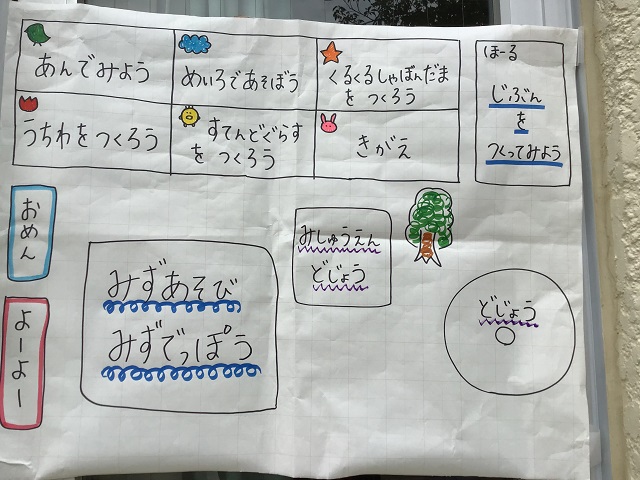 あんでみよう
めいろであそぼう
くるくるしゃぼんだま
をつくろう
うちわをつくろう
すてんどぐらす
をつくろう
きがえ
ほーる
じぶん
を
つくってみよう
おめん
よーよー
みずあそび
みずでっぽう
みしゅうえん
どじょう
どじょう